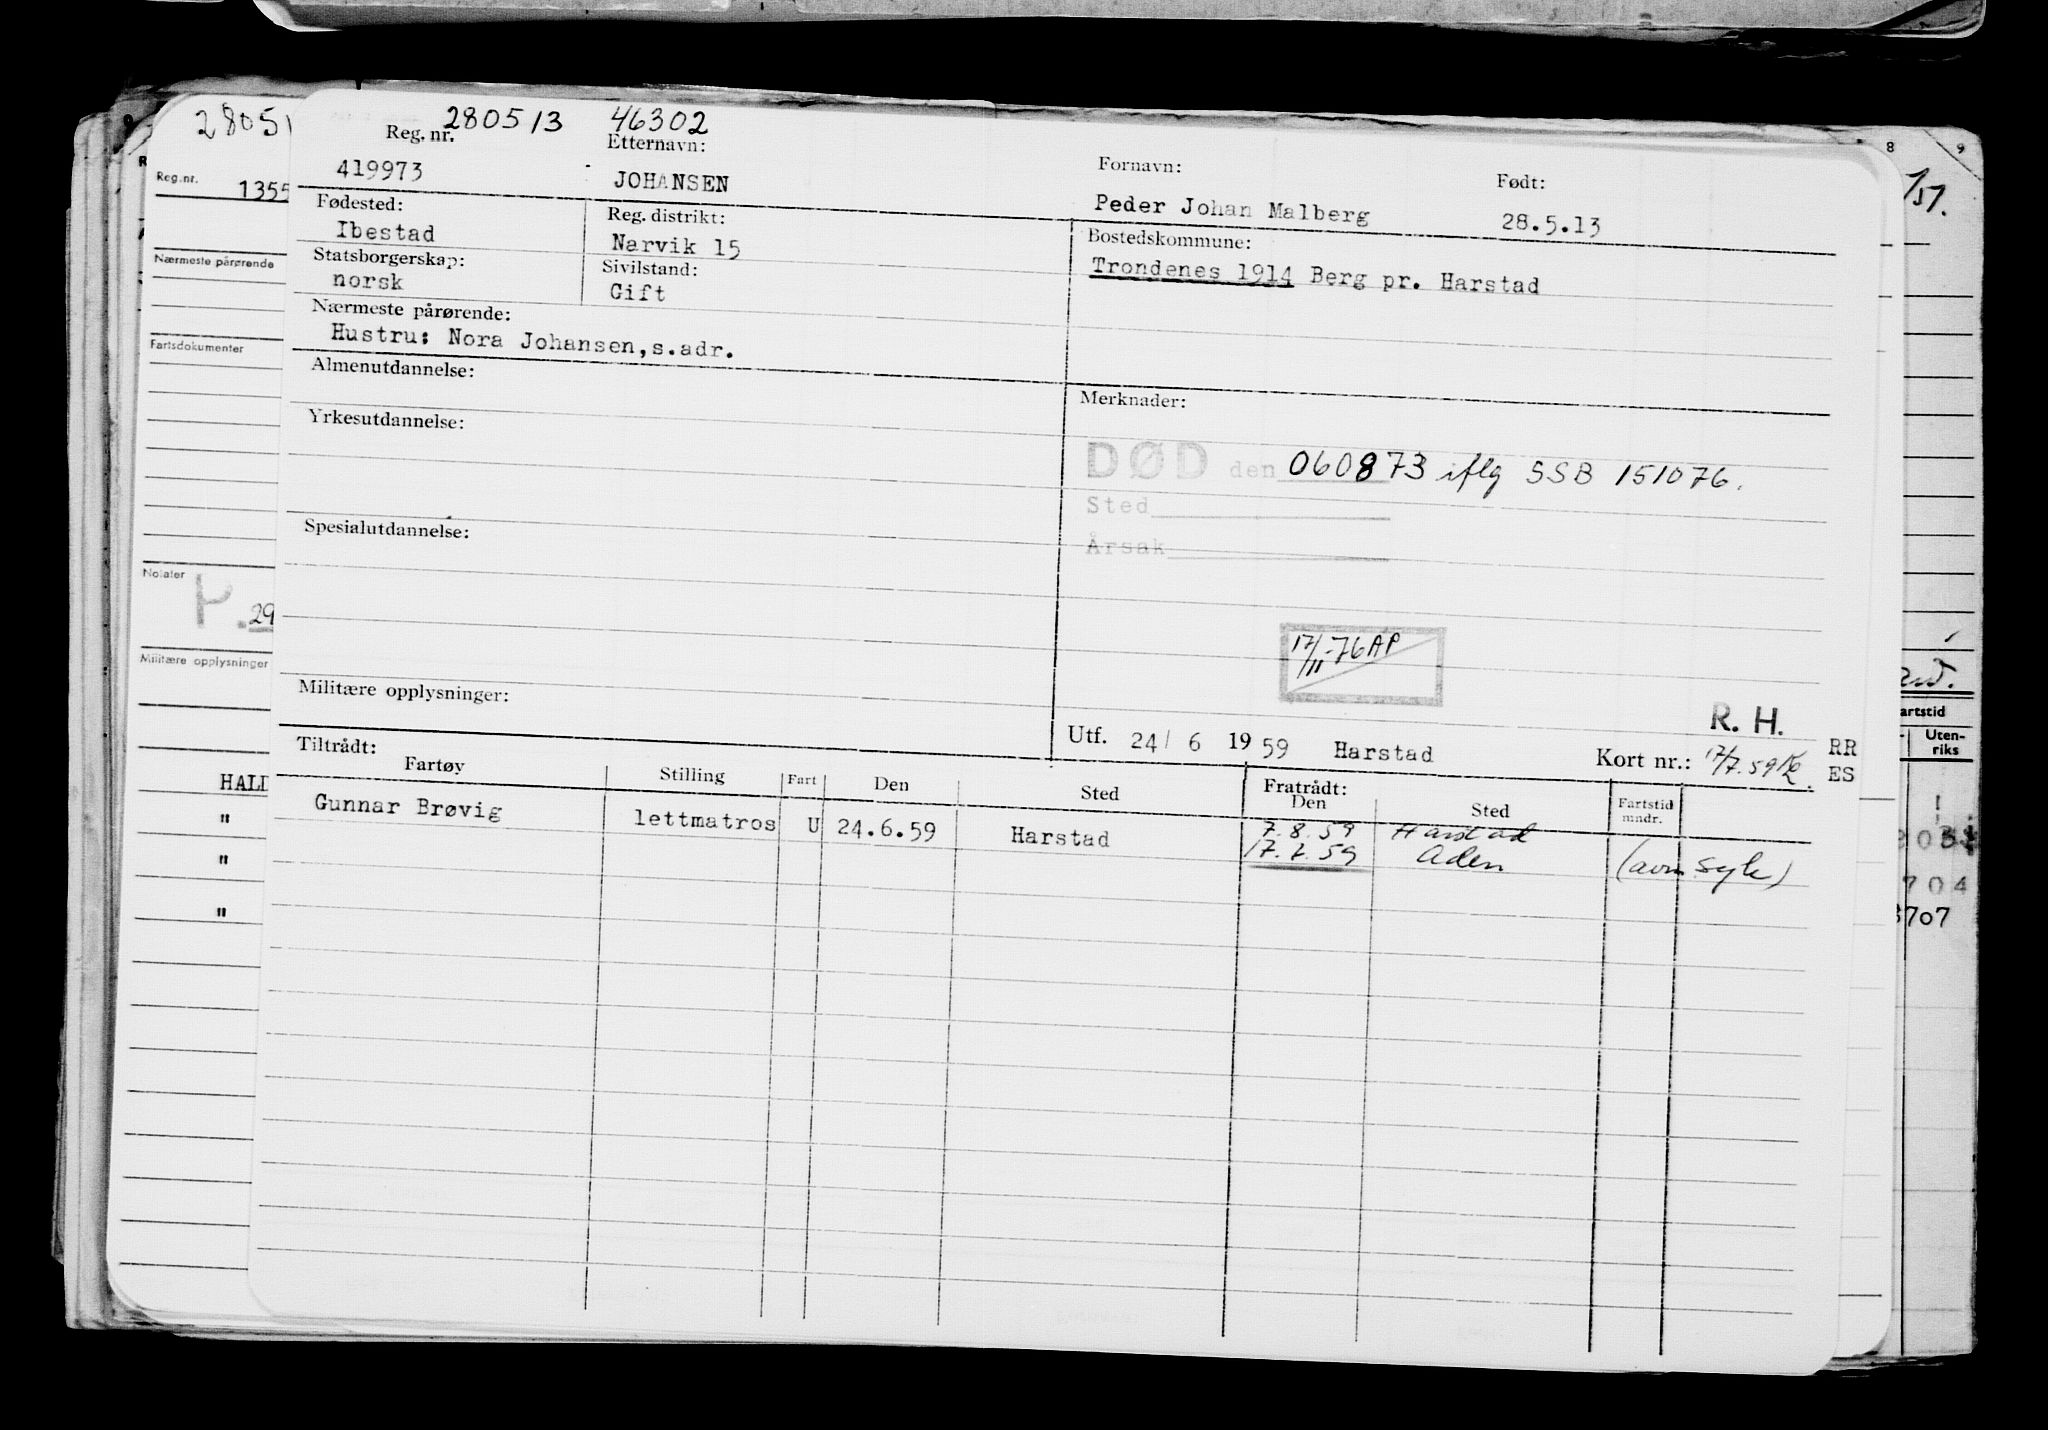 280513 46302
Reg. nr. Etternavn: Fornavn: Født:
419973 JOHANSEN Peder Johan Malberg 28.5.13
Fødested: Reg. distrikt: Bostedskommune:
Ibestad Narvik 15 Trondenes 1914 Berg pr. Harstad
Statsborgerskap: Sivilstand:
norsk Gift
Nærmeste pårørende:
Hustru: Nora Johansen,s.adr.
Almenutdannelse:
Merknader:
Yrkesutdannelse:
DØD den 060873 iflg SSB 151076.
Sted
Årsak
Spesialutdannelse:
17/11-76 AP
Militære opplysninger:
R. H.
Utf. 24/ 6 1959 Harstad Kort nr.: 17/7.59 RR
ES
Tiltrådt: Fratrådt:
Fartøy Stilling Fart Den Sted Den Sted Fartstid mndr.
Gunnar Brøvig lettmatros U 24.6.59 Harstad 7.8.59 Harstad
17.7.59 Aden (avm syk)
28051
Reg.nr. 1355
Nærmeste pårørende
Fartsdokumenter
Notater
P. 29
Militære opplysninger
HALD
"
"
"
8 9
artstid
Uten-
riks
704
3707